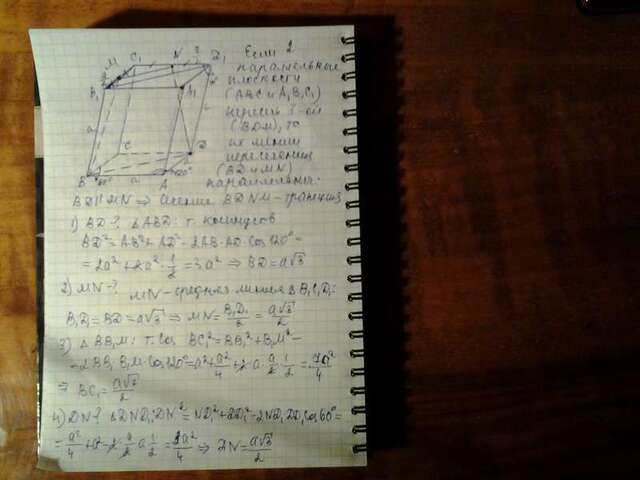 Если 2
параллельные
плоскости
(ABC и A₁B₁C₁)
пересеч. 3-ей
(BDM), то
их линии
пересечения
(BD и MN)
параллельны.
M C₁ N D₁
B₁ A₁
a
C D
B 60° a A 120°
BD ∥ MN ⇒ Сечение BDNM - трапеция
1) BD-? △ABD: т. косинусов
BD² = AB² + AD² - 2AB·AD·cos120° =
= 2a² + 2a²·1/2 = 3a² ⇒ BD = a√3
2) MN-? MN - средняя линия △ B₁C₁D₁:
B₁D₁ = BD = a√3 ⇒ MN = B₁D₁/2 = a√3/2
3) △ BB₁M: т. cos BC₁² = BB₁² + B₁M² -
- 2BB₁·B₁M·cos120° = a² + a²/4 + 2·a·a/2·1/2 = 7a²/4
⇒ BC₁ = a√7/2
4) DN-? △DND₁: DN² = ND₁² + DD₁² - 2ND₁·DD₁·cos60° =
= a²/4 + a² - 2·a/2·a·1/2 = 3a²/4 ⇒ DN = a√3/2